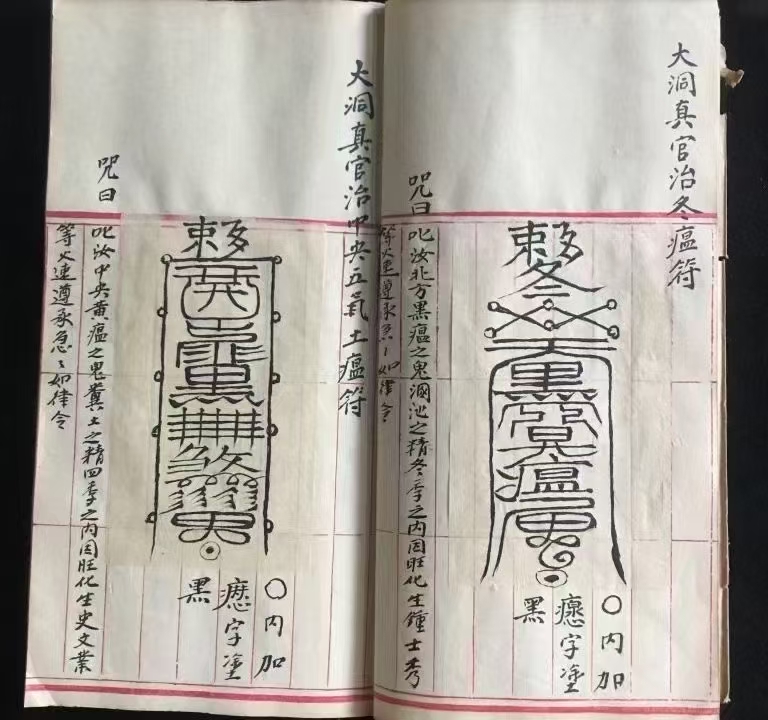 大洞真官治冬瘟符
咒曰
叱汝北方黑瘟之鬼溷池之精冬季之内因旺化生鍾士秀
等火速遵承急〻如律令
敕
冬
黑
瘟
〇内加
瘛字塗
黑
大洞真官治中央五氣土瘟符
咒曰
叱汝中央黄瘟之鬼糞土之精四季之内因旺化生史文業
等火速遵承急〻如律令
敕
黑
煞
〇内加
瘛字塗
黑